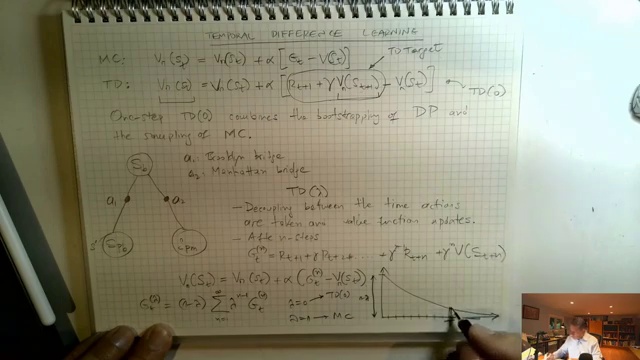 TEMPORAL DIFFERENCE LEARNING
TD Target
MC: Vπ(St) = Vπ(St) + α [Gt − V(St)]
TD: Vπ(St) = Vπ(St) + α [Rt+1 + γ Vπ(St+1) − Vπ(St)]
TD(0)
One-step TD(0) combines the bootstrapping of DP and
the sampling of MC.
S0
a1: Brooklyn bridge
a2: Manhattan bridge
a1
a2
TD(λ)
- Decoupling between the time actions
are taken and value function updates.
- After n-steps
+ γ^n V(St+n)
Vπ(St) = Vπ(St) + α (Gt^(n) − Vπ(St))
λ=0 → TD(0)
→ MC